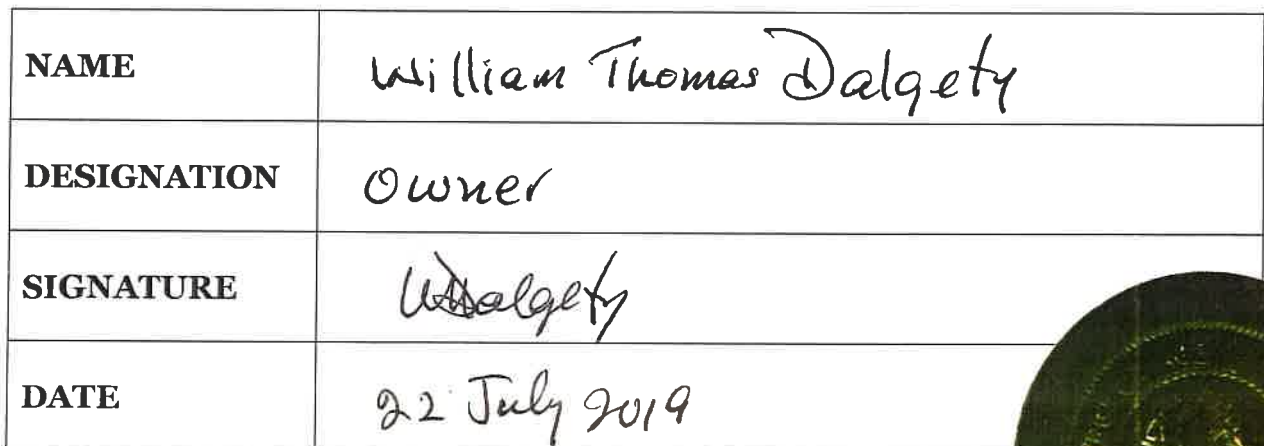 NAME William Thomas Dalgety
DESIGNATION Owner
SIGNATURE WDalgety
DATE 22 July 2019